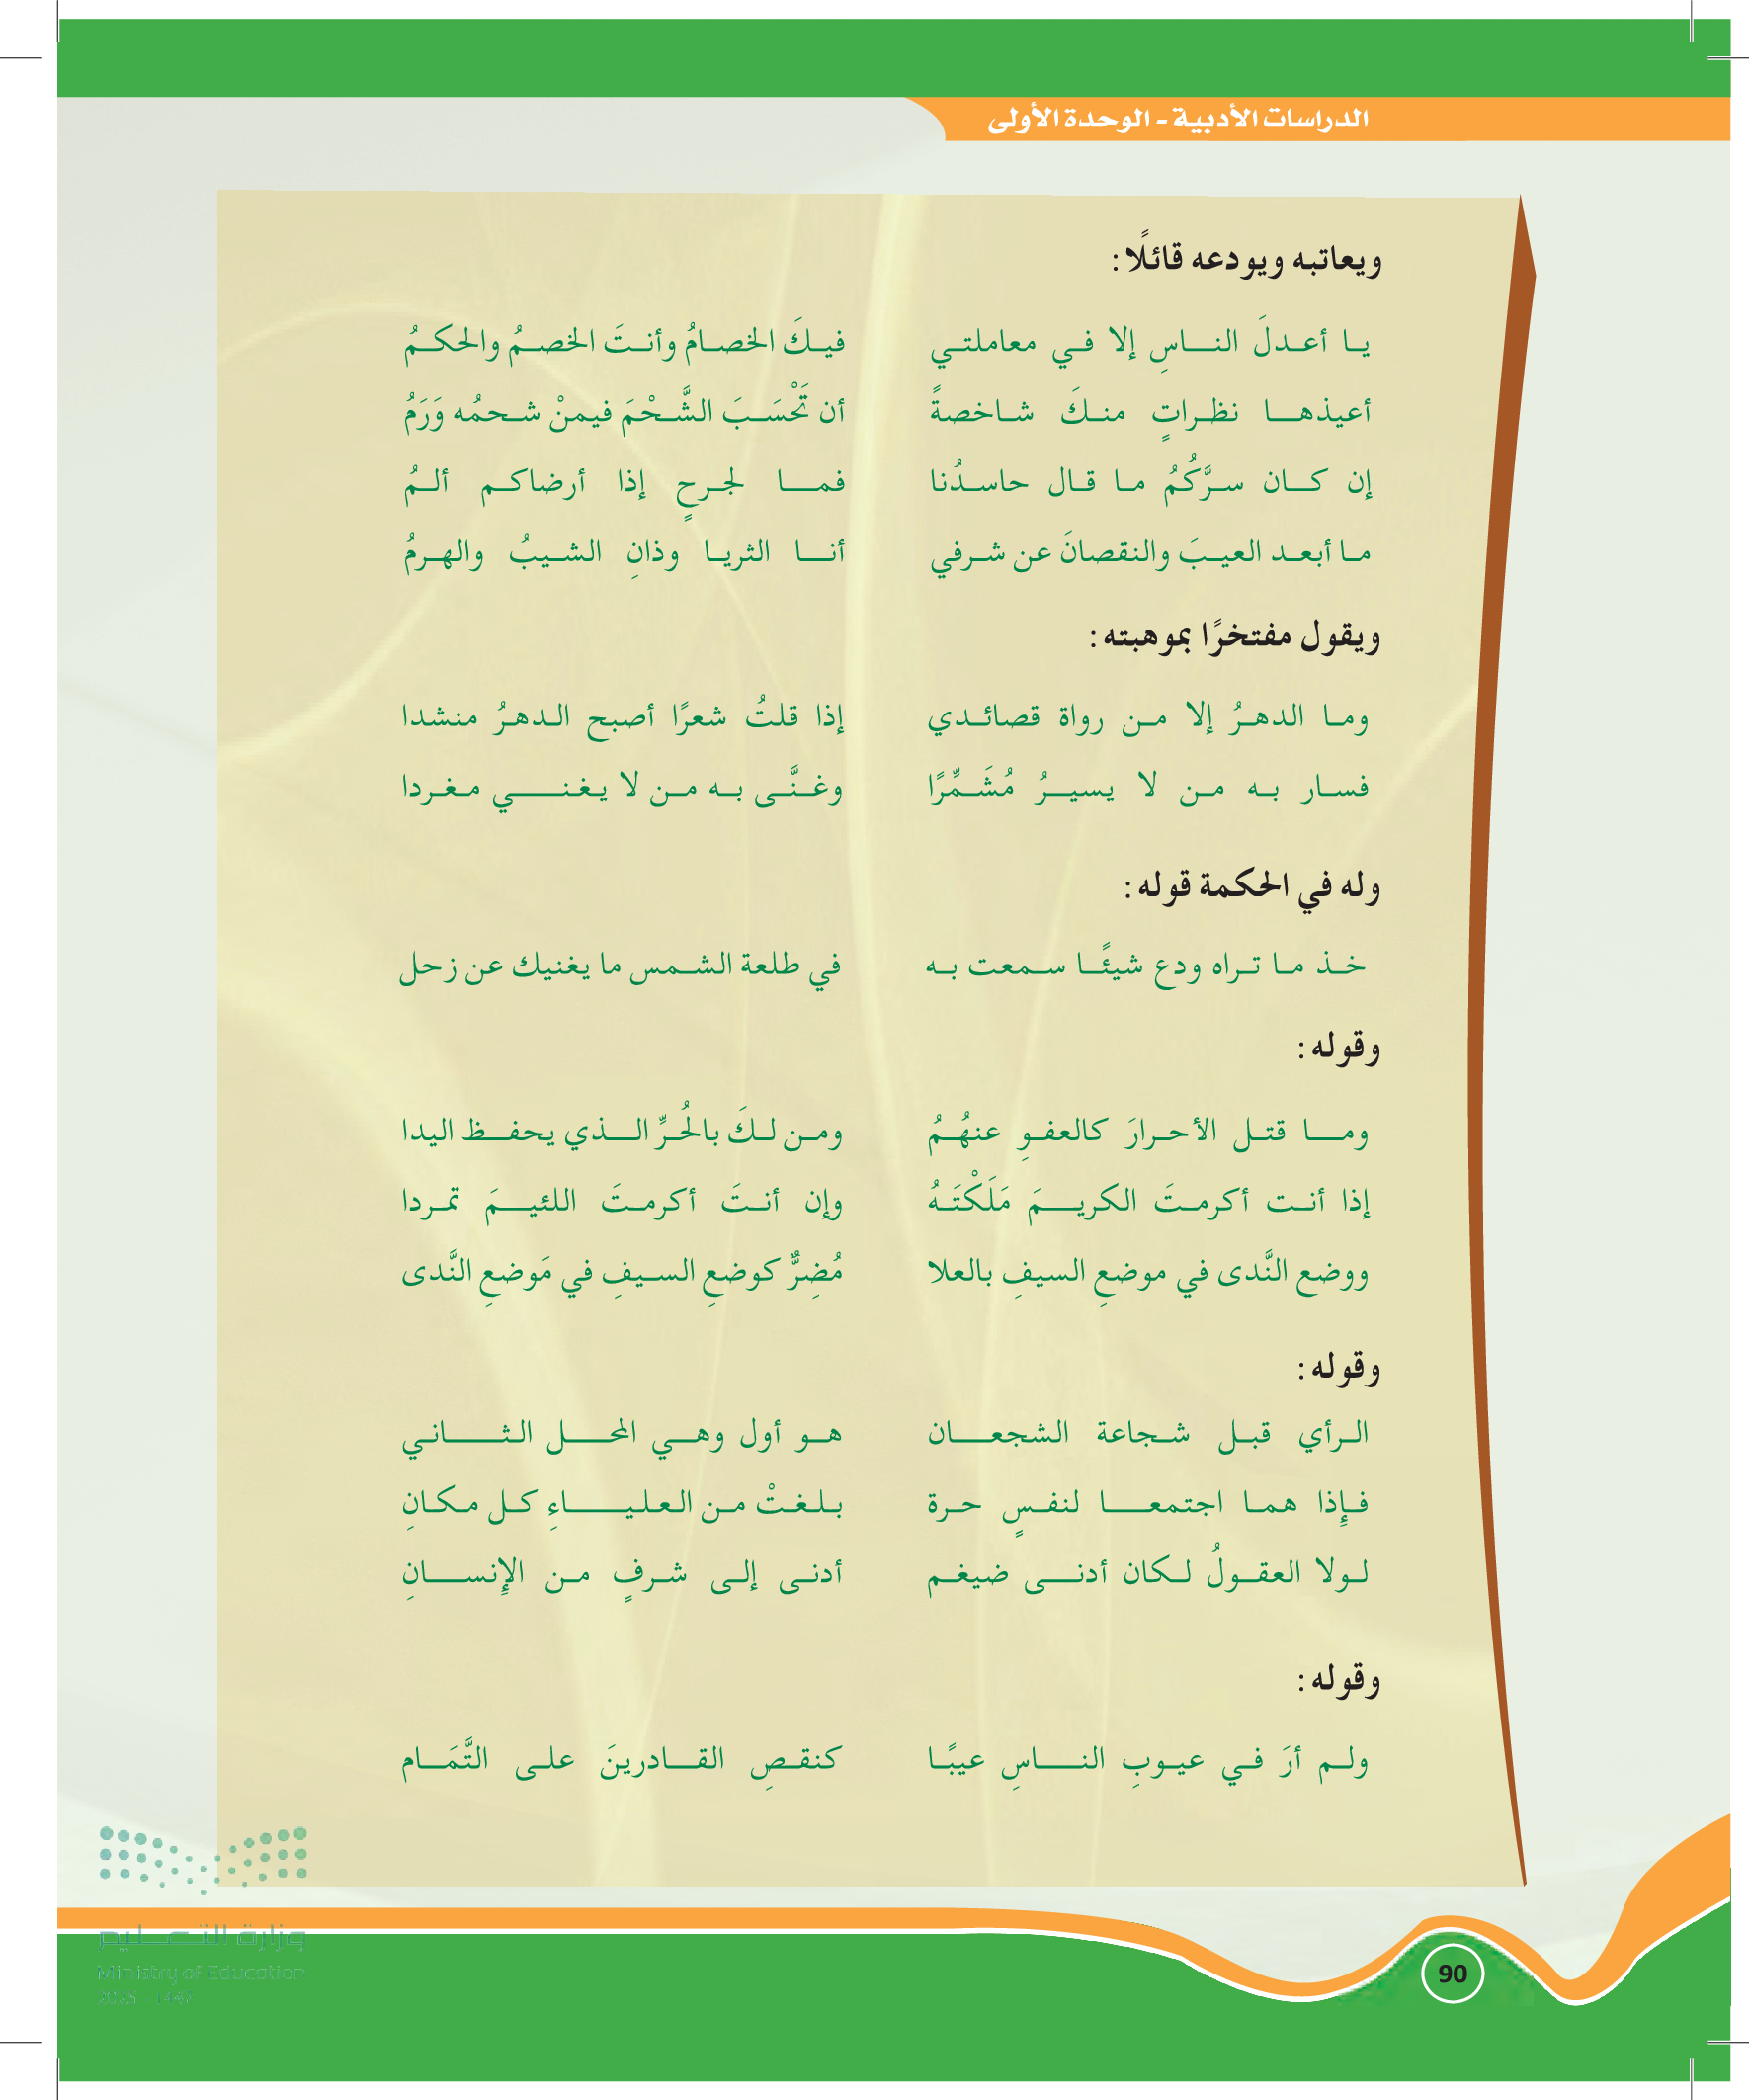 الدراسات الأدبية - الوحدة الأولى
ويعاتبه ويودعه قائلًا:
يا أعدلَ الناسِ إلا في معاملتي فيكَ الخصامُ وأنتَ الخصمُ والحكمُ
أعيذها نظراتٍ منكَ شاخصةً أن تَحْسَبَ الشَّحْمَ فيمنْ شحمُه وَرَمُ
إن كان سرَّكُمُ ما قال حاسدُنا فما لجرحٍ إذا أرضاكم ألمُ
ما أبعد العيبَ والنقصانَ عن شرفي أنا الثريا وذانِ الشيبُ والهرمُ
ويقول مفتخرًا بموهبته:
وما الدهرُ إلا من رواة قصائدي إذا قلتُ شعرًا أصبح الدهرُ منشدا
فسار به من لا يسيرُ مُشَمِّرًا وغنَّى به من لا يغني مغردا
وله في الحكمة قوله:
خذ ما تراه ودع شيئًا سمعت به في طلعة الشمس ما يغنيك عن زحل
وقوله:
وما قتل الأحرارَ كالعفوِ عنهُمُ ومن لكَ بالحُرِّ الذي يحفظ اليدا
إذا أنت أكرمتَ الكريمَ مَلَكْتَهُ وإن أنتَ أكرمتَ اللئيمَ تمردا
ووضع النَّدى في موضعِ السيفِ بالعلا مُضِرٌّ كوضعِ السيفِ في مَوضعِ النَّدى
وقوله:
الرأي قبل شجاعة الشجعان هو أول وهي المحل الثاني
فإِذا هما اجتمعا لنفسٍ حرة بلغتْ من العلياءِ كل مكانِ
لولا العقولُ لكان أدنى ضيغم أدنى إلى شرفٍ من الإِنسانِ
وقوله:
ولم أرَ في عيوبِ الناسِ عيبًا كنقصِ القادرينَ على التَّمَام
وزارة التعليم
Ministry of Education
2025 - 1447
90